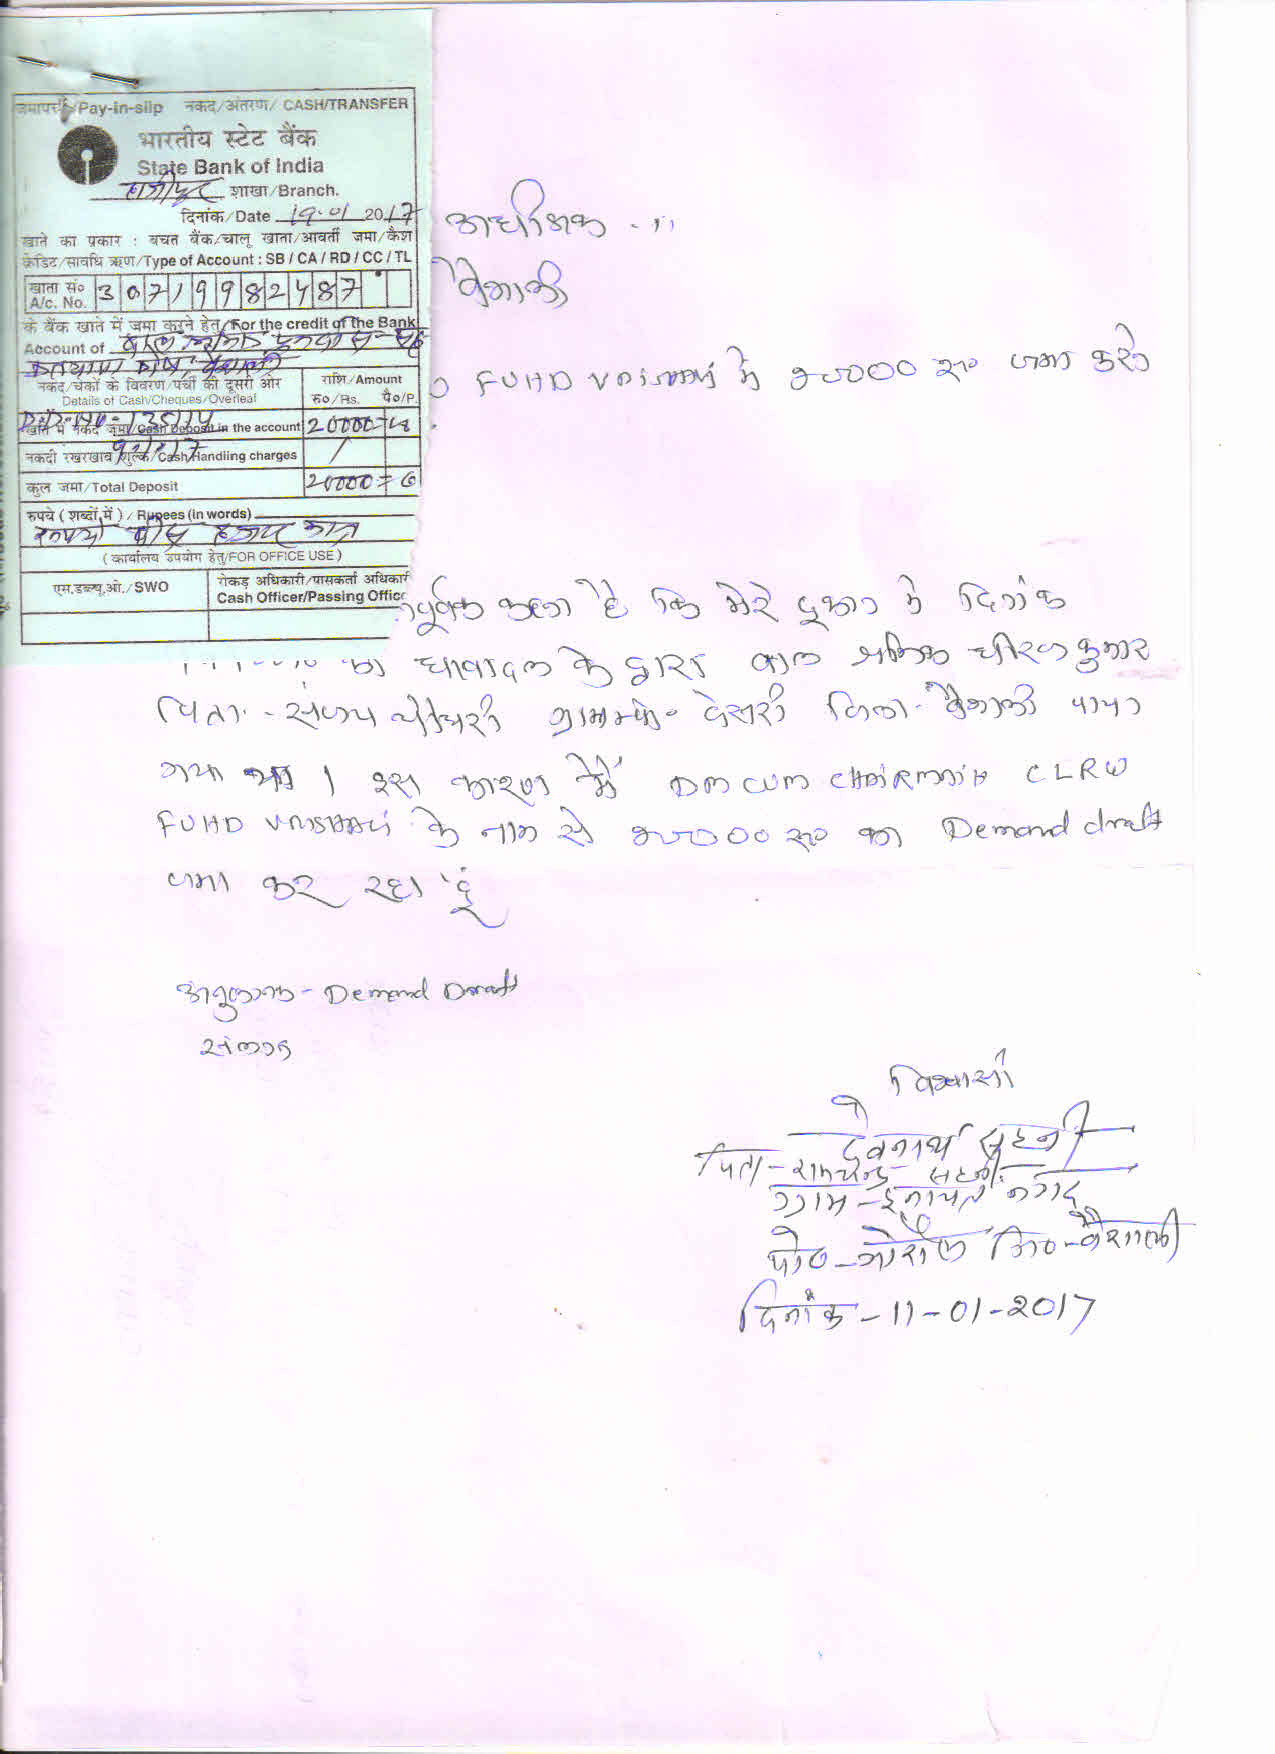 जमापर्ची/Pay-in-slip नकद/अंतरण/ CASH/TRANSFER
भारतीय स्टेट बैंक
State Bank of India
हाजीपुर शाखा/Branch.
दिनांक/Date 19.01 2017
खाते का प्रकार : बचत बैंक/चालू खाता/आवर्ती जमा/कैश
क्रेडिट/सावधि ऋण/Type of Account : SB / CA / RD / CC / TL
खाता सं०
A/c. No. 30719982487
के बैंक खाते में जमा करने हेतु/For the credit of the Bank
Account of बाल श्रमिक
कल्याण कोष, वैशाली
नकद/चेकों के विवरण/पर्ची की दूसरी ओर राशि/Amount
Details of Cash/Cheques/Overleaf रु०/Rs. पै०/P.
खाते में नकद जमा/Cash Deposit in the account 20000=
नकदी रखरखाव शुल्क/Cash Handling charges
कुल जमा/Total Deposit 20000=
रुपये ( शब्दों में ) / Rupees (in words)
रूपये बीस हजार मात्र
( कार्यालय उपयोग हेतु/FOR OFFICE USE )
एस.डब्ल्यू.ओ./SWO रोकड़ अधिकारी/पासकर्ता अधिकारी
Cash Officer/Passing Offic
अधीक्षक
वैशाली
FUHD में 20000 रू० जमा करने
पूर्वक कहना है कि मेरे दूकान में दिनांक
को धावादल के द्वारा बाल श्रमिक धीरज कुमार
पिता - संजय चौधरी देसरी जिला - वैशाली पाया
गया था । इस कारण मैं DM CUM CHAIRMAIH CLRW
FUHD के नाम से 20000 रू० का Demand draft
जमा कर रहा हूँ
अनुलग्नक - Demand Draft
संलग्न
विश्वासी
देवनाथ सहनी
पिता - रामचन्द्र सहनी
ग्राम - इनायत नगर
पो० - गोरौल जि० - वैशाली
दिनांक - 11-01-2017